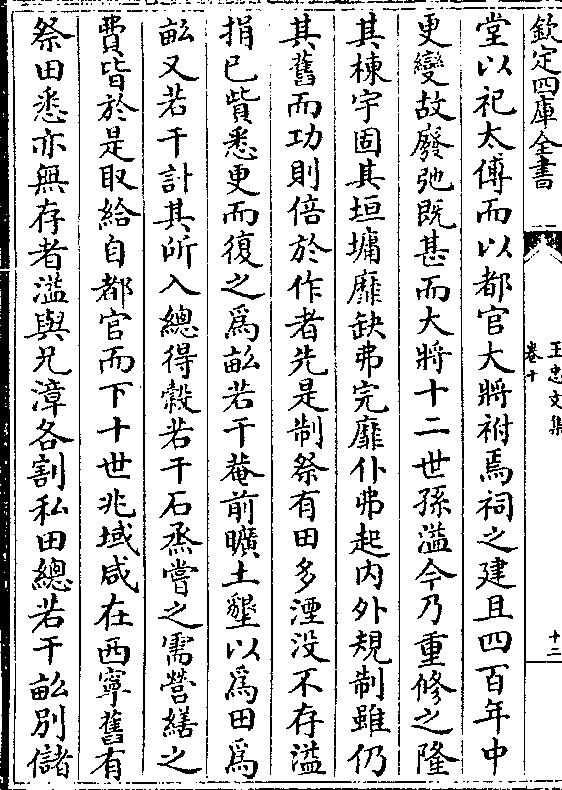 欽定四庫全書
王忠文集
卷十
十二
堂以祀太傅而以都官大將祔焉祠之建且四百年中
更變故廢弛既甚而大將十二世孫溢今乃重修之隆
其棟宇固其垣墉靡缺弗完靡仆弗起内外規制雖仍
其舊而功則倍於作者先是制祭有田多湮没不存溢
捐已貲悉更而復之為畝若干菴前曠土墾以為田為
畝又若干計其所入總得榖若干石烝嘗之需營繕之
費皆於是取給自都官而下十世兆域咸在西寧舊有
祭田悉亦無存者溢與兄漳各割私田總若干畝別儲